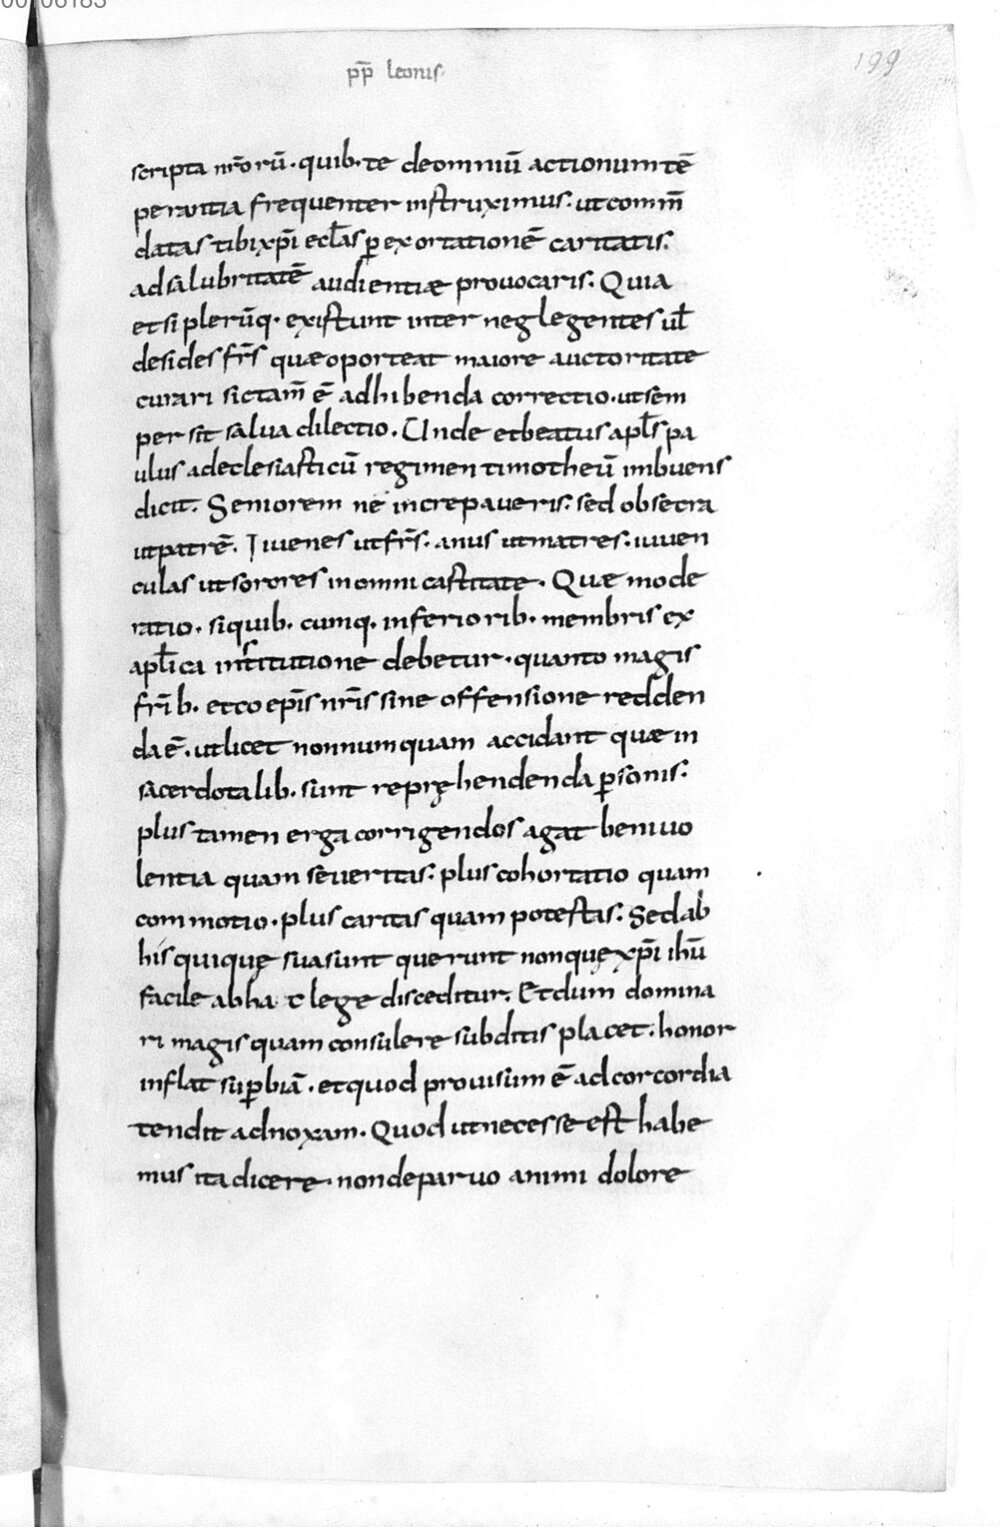 pp̄ leonis·
199
scripta nr̄orū · quib· te deomniū actionum tē
perantia frequenter instruximus : ut comm̄
datas tibi xp̄i ecl̄as p̱ exortationē caritatis :
ad salubritatē audientiæ provocaris · Quia
etsi plerūq· existunt inter neglegentes ul̄
desides fr̄s quæ oporteat maiore auctoritate
curari sic tam̄ ē adhibenda correctio · ut sem
per sit salva dilectio · Unde et beatus apl̄s pa
ulus ad eclesiasticū regimen timotheū imbuens
dicit · Seniorem ne increpaveris : sed obsecra
ut patrē · Iuvenes ut fr̄s · anus ut matres · iuven
culas ut sorores in omni castitate · Quæ mode
ratio · si quib· cumq· inferiorib· membris ex
apl̄ica institutione debetur · quanto magis
fr̄ib· et coep̄is nr̄is sine offensione redden
da ē · ut licet nonnumquam accidant quæ in
sacerdotalib· sunt repręhendenda p̱sonis :
plus tamen erga corrigendos agat benivo
lentia quam severitas : plus cohortatio quam
commotio · plus caritas quam potestas : Sed ab
his qui quę sua sunt querunt non quę xp̄i ih̄u
facile ab hac lege disceditur · Et dum domina
ri magis quam consulere subditis placet · honor
inflat sup̱biā · et quod provisum ē ad corcordia
tendit ad noxam · Quod ut necesse est habe
mus ita dicere · non de parvo animi dolore